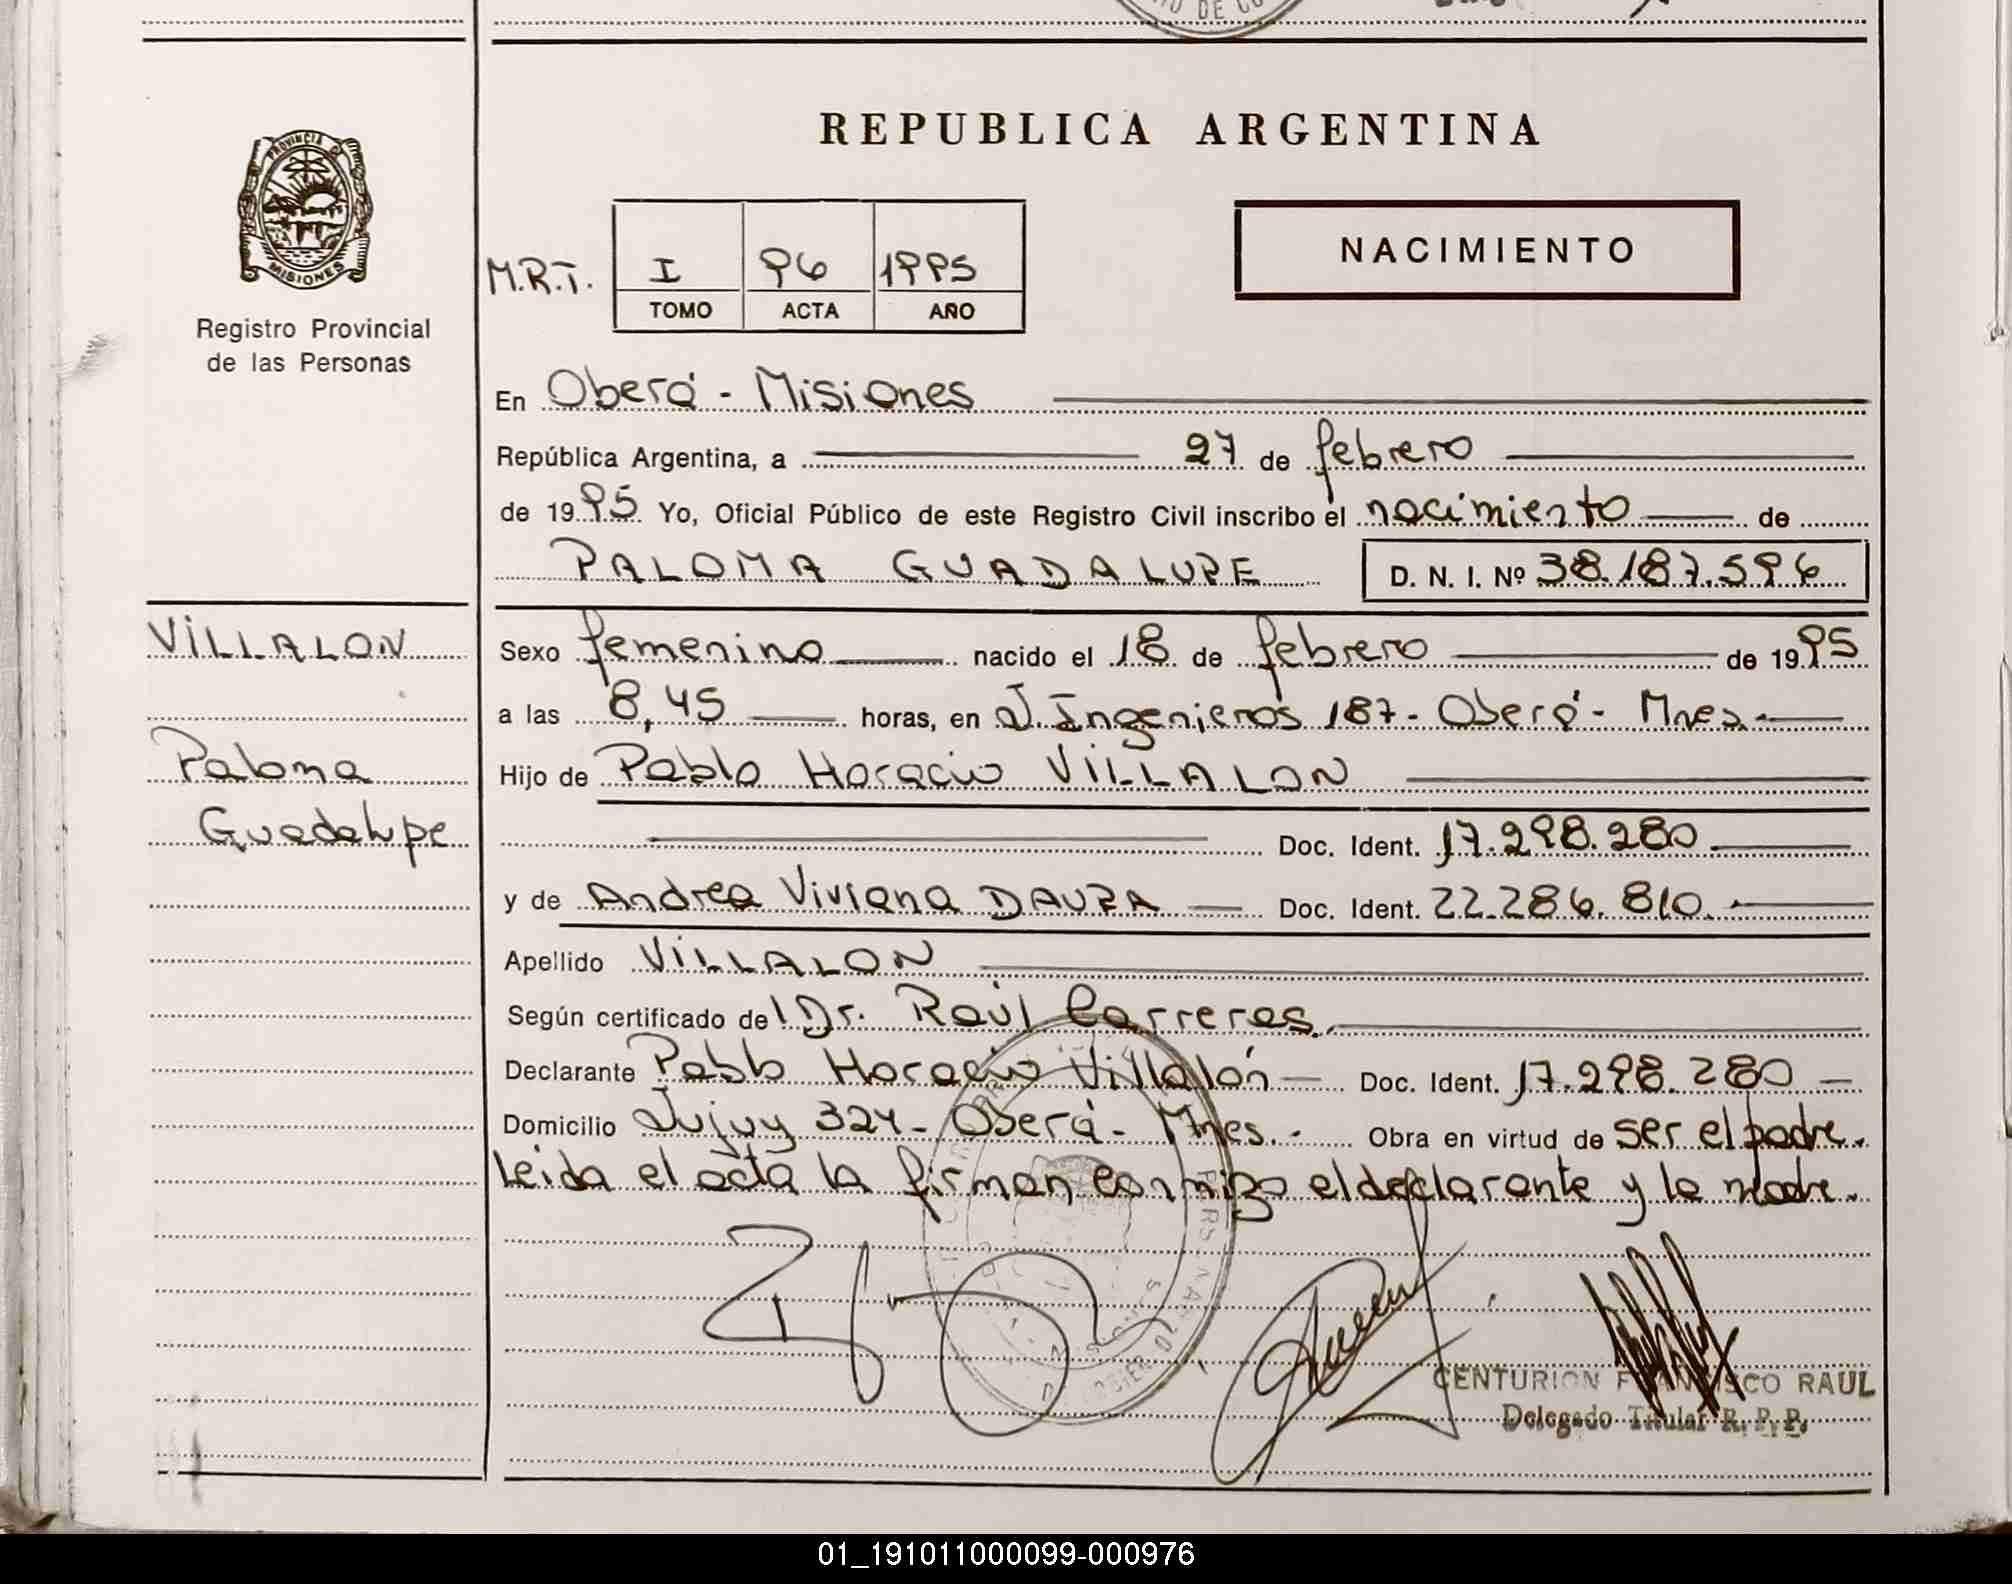 REPUBLICA ARGENTINA
PROVINCIA D
MISIONES
Registro Provincial
de las Personas
M.R.T.
I 96 1995
TOMO ACTA AÑO
NACIMIENTO
En Oberá - Misiones
República Argentina, a 27 de febrero
de 1995 Yo, Oficial Público de este Registro Civil inscribo el nacimiento de
PALOMA GUADALUPE D. N. I. Nº 38.187.596
VILLALON
Paloma
Guadalupe
Sexo femenino nacido el 18 de febrero de 1995
a las 8,45 horas, en J. Ingenieros 187 - Oberá - Mnes.
Hijo de Pablo Horacio VILLALON
Doc. Ident. 17.298.280
y de Andrea Viviana DAUZA Doc. Ident. 22.286.810.
Apellido VILLALON
Según certificado del Dr. Raúl Carreras.
Declarante Pablo Horacio Villalón Doc. Ident. 17.298.280
Domicilio Jujuy 324 - Oberá - Mnes. - Obra en virtud de ser el padre.
Leida el acta la firman conmigo el declarante y la madre.
CENTURION FRANCISCO RAUL
Delegado Titular R. P. P.
01_191011000099-000976